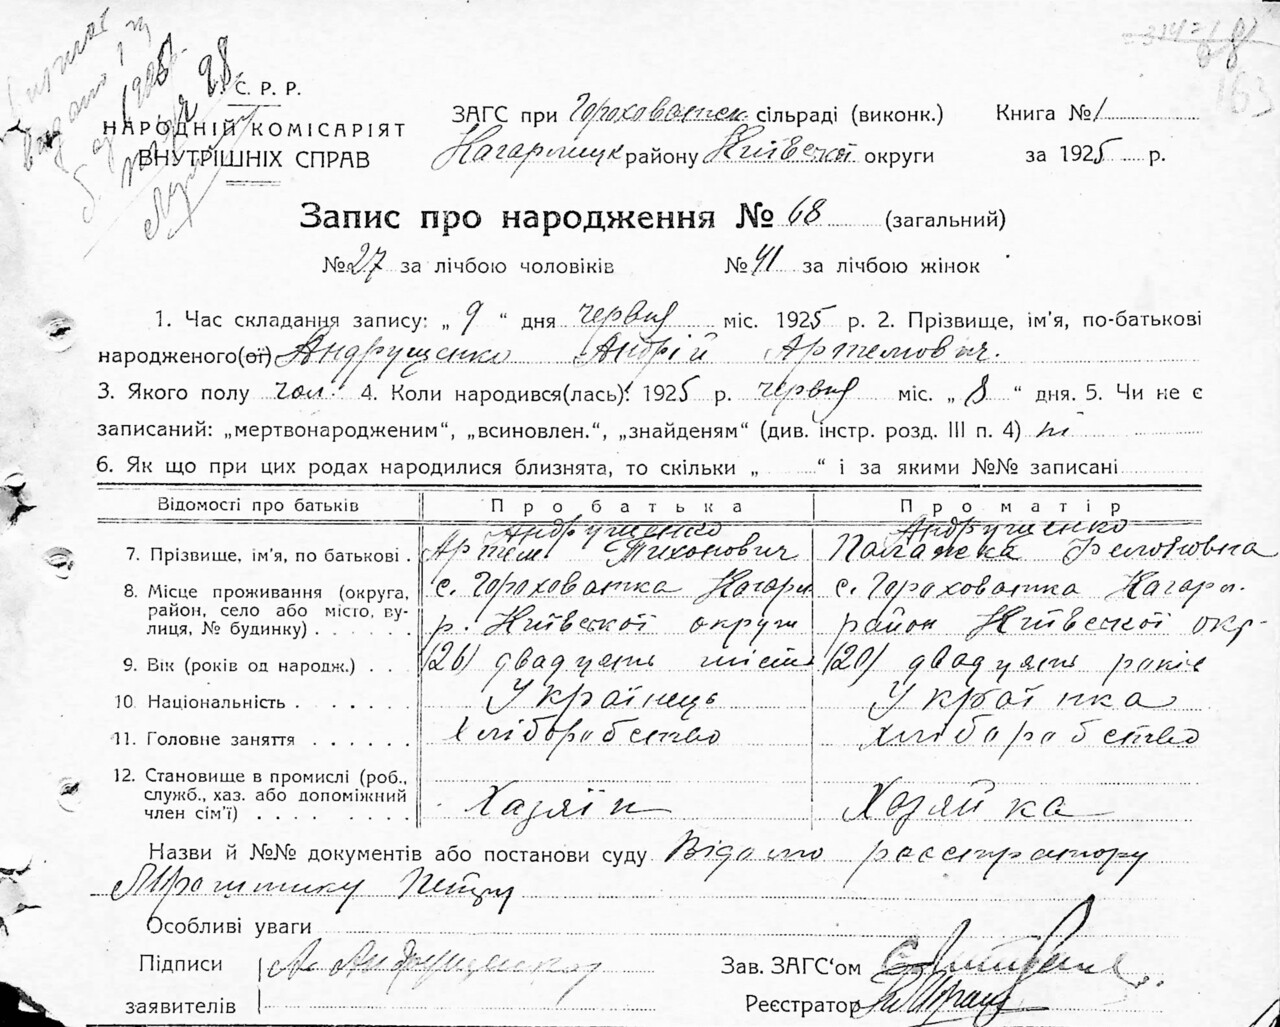 С. Р. Р.
НАРОДНІЙ КОМІСАРІЯТ
ВНУТРІШНІХ СПРАВ
ЗАГС при Гороховатск. сільраді (виконк.)
Кагарлицк району Київської округи
Книга № 1
за 1925 р.
Запис про народження № 68 (загальний)
№ 27 за лічбою чоловіків № 41 за лічбою жінок
1. Час складання запису: „ 9 “ дня червня міс. 1925 р. 2. Прізвище, ім'я, по-батькові
народженого(ої) Андрущенко Андрій Артемович.
3. Якого полу чол. 4. Коли народився(лась): 1925 р. червня міс. „ 8 “ дня. 5. Чи не є
записаний: „мертвонародженим“, „всиновлен.“, „знайденям“ (див. інстр. розд. III п. 4) ні
6. Як що при цих родах народилися близнята, то скільки „ “ і за якими №№ записані
Відомості про батьків Про батька Про матір
Андрущенко Андрущенко
7. Прізвище, ім'я, по батькові . Артем Тихонович Палажка
8. Місце проживання (округа, с. Гороховатка Кагарл с. Гороховатка Кагарл.
район, село або місто, ву-
лиця, № будинку) . . . . . . р. Київської округи район Київської окр.
9. Вік (років од народж.) . . (26) двадцять шість (20) двадцять років
10. Національність . . . . . . Українець Українка
11. Головне заняття . . . . . . хліборобство хліборобство
12. Становище в промислі (роб.,
служб., хаз. або допоміжний
член сім'ї) . . . . . . . . Хазяїн Хозяйка
Назви й №№ документів або постанови суду Відомо реєстратору
Особливі уваги
Підписи А. Андрущенко Зав. ЗАГС‘ом
заявителів Реєстратор